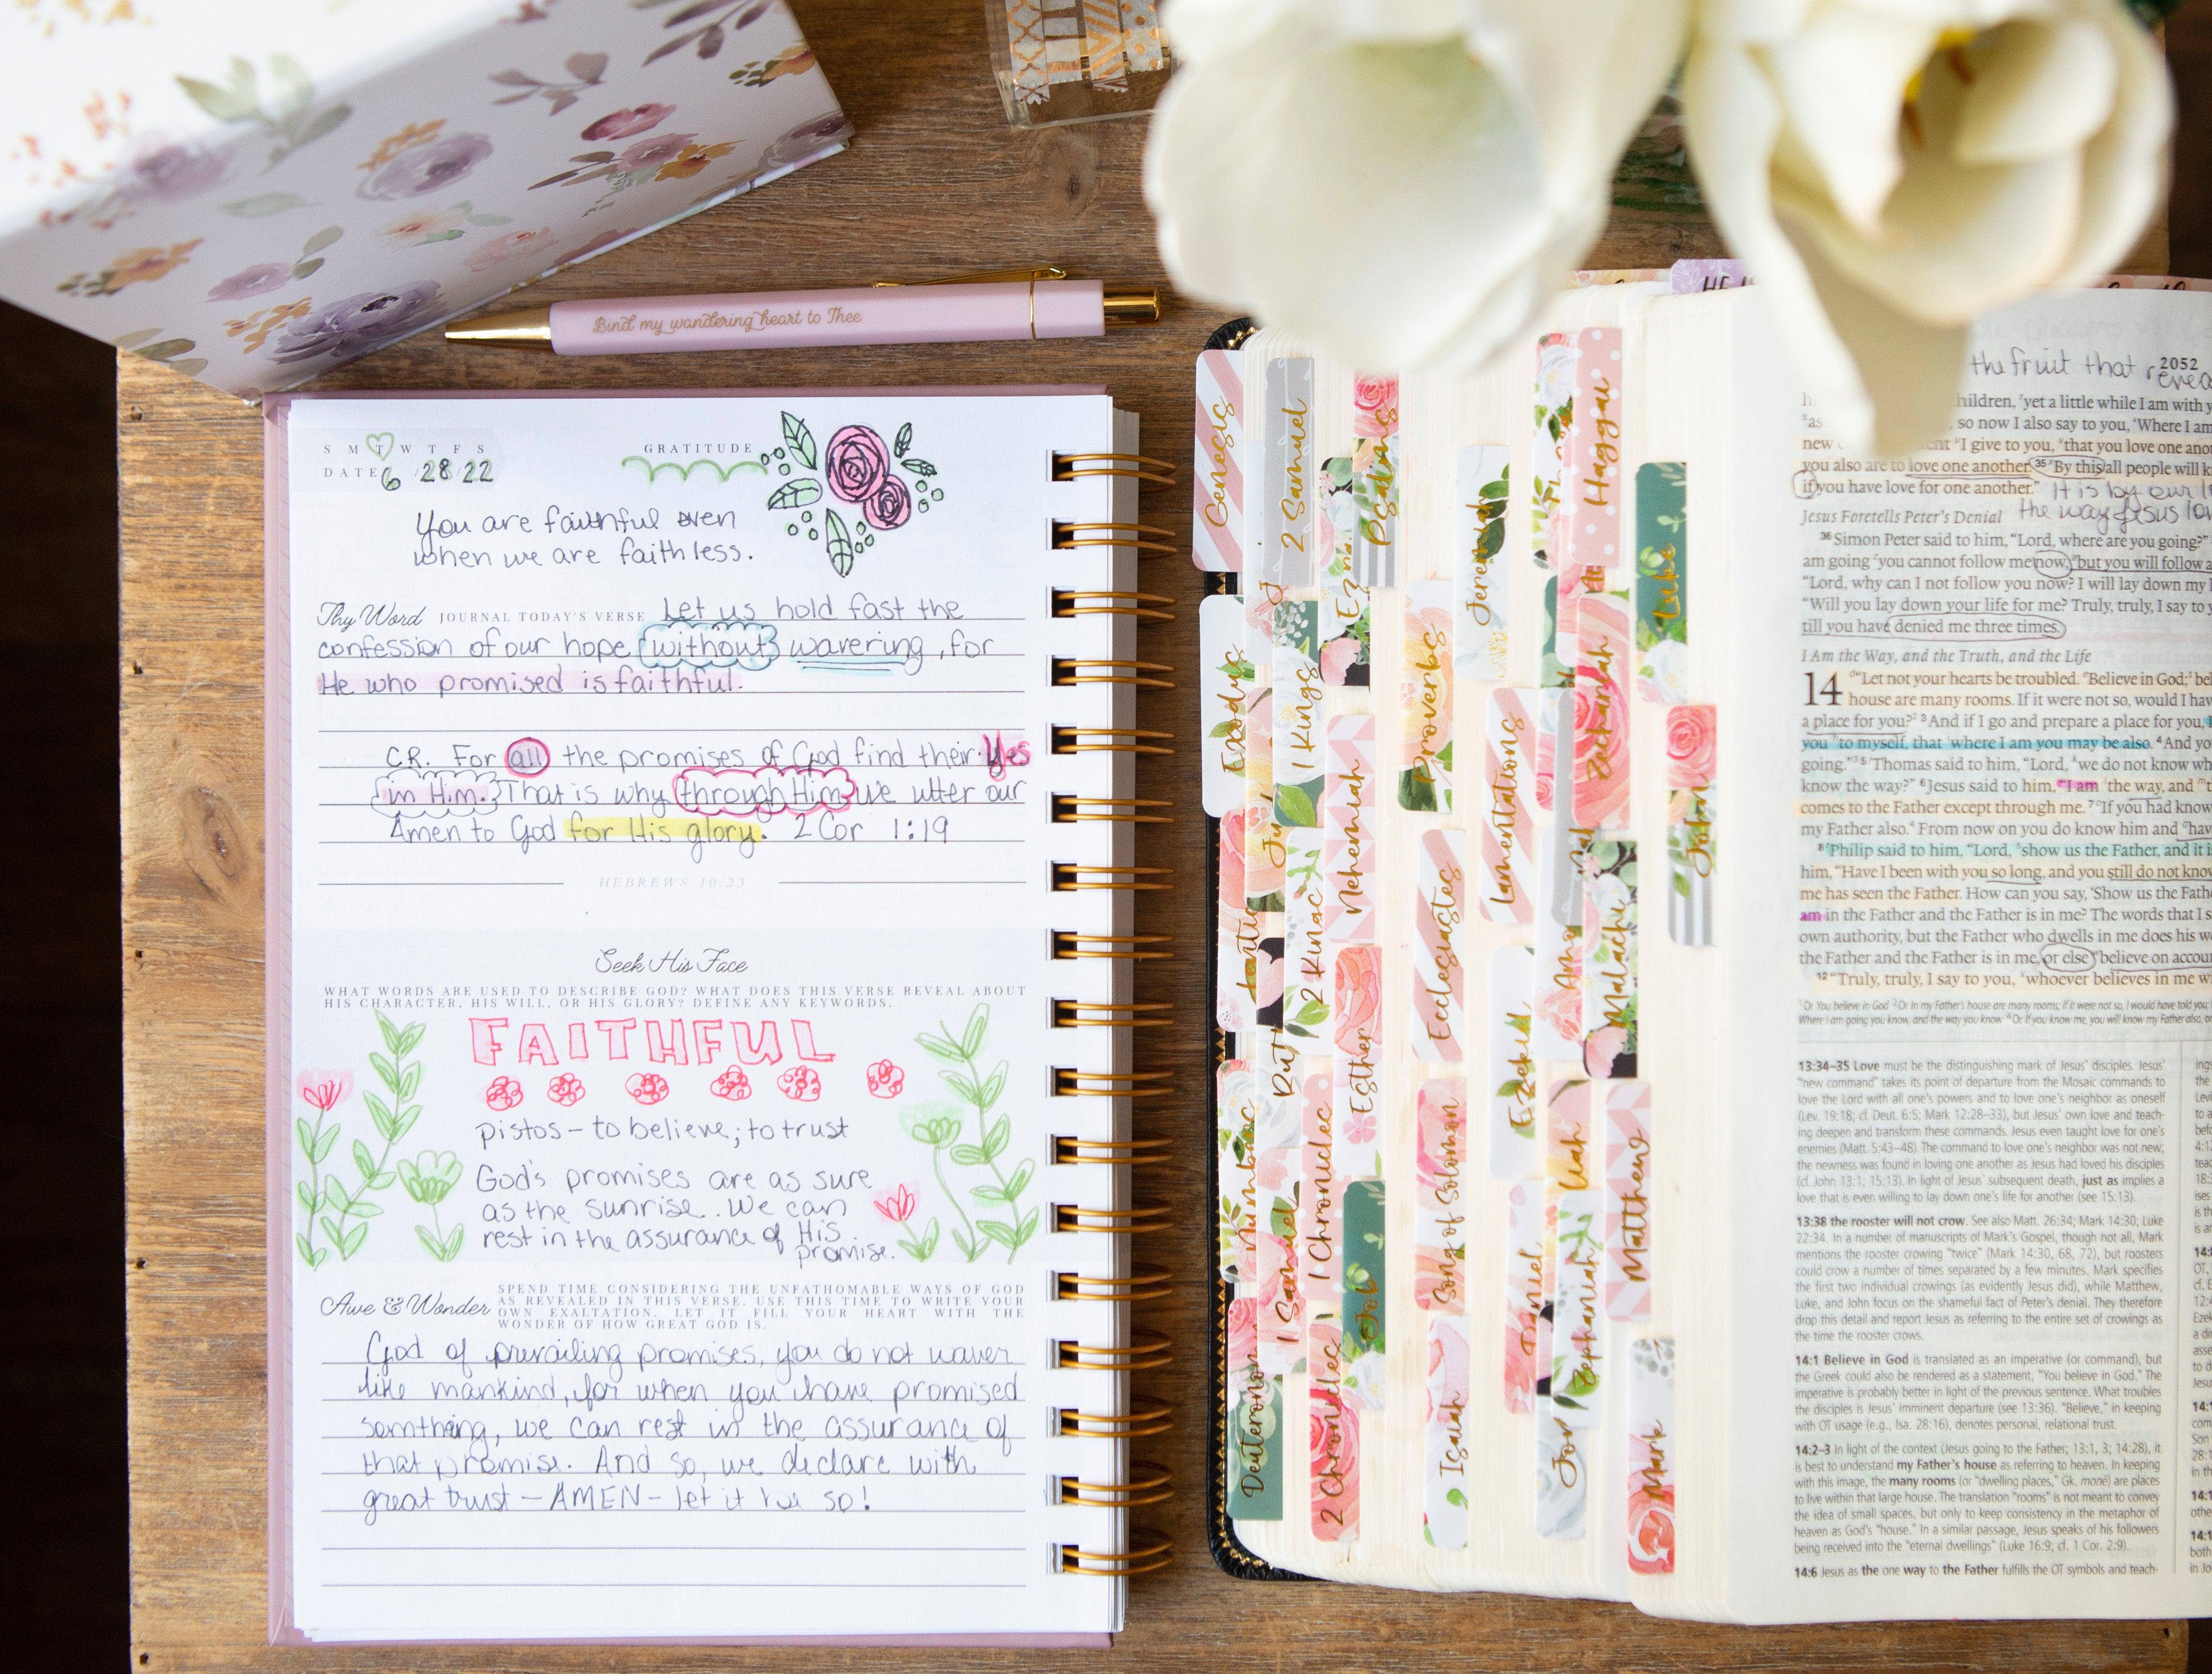 Bind my wandering heart to Thee
S M T W T F S
DATE 6/28/22
GRATITUDE
You are faithful even
when we are faithless.
Thy Word JOURNAL TODAY'S VERSE Let us hold fast the
confession of our hope without wavering, for
He who promised is faithful.
C.R. For all the promises of God find their Yes
in Him. That is why through Him we utter our
Amen to God for His glory. 2 Cor 1:19
HEBREWS 10:23
Seek His Face
WHAT WORDS ARE USED TO DESCRIBE GOD? WHAT DOES THIS VERSE REVEAL ABOUT
HIS CHARACTER, HIS WILL, OR HIS GLORY? DEFINE ANY KEYWORDS.
FAITHFUL
pistos - to believe; to trust
God's promises are as sure
as the sunrise. We can
rest in the assurance of His
promise.
Awe & Wonder
SPEND TIME CONSIDERING THE UNFATHOMABLE WAYS OF GOD
AS REVEALED IN THIS VERSE. USE THIS TIME TO WRITE YOUR
OWN EXALTATION. LET IT FILL YOUR HEART WITH THE
WONDER OF HOW GREAT GOD IS.
God of prevailing promises, you do not waver
like mankind, for when you have promised
somthing, we can rest in the assurance of
that promise. And so, we declare with
great trust - AMEN - let it be so!
Genesis
Exodus
Numbers
Deuteronom
2 Samuel
1 Kings
2 Kings
Ruth
1 Samuel
1 Chronicles
2 Chronicles
Ezra
Nehemiah
Esther
Job
Psalms
Proverbs
Ecclesiastes
Song of Solomon
Isaiah
Jeremiah
Lamentations
Ezekiel
Daniel
Zephaniah
Haggai
Zechariah
Malachi
Matthew
Mark
Luke
John
the fruit that
2052
children, yet a little while I am with
so now I also say to you, 'Where I am
new I give to you, that you love one
you also are to love one another. 35 By this all people will
if you have love for one another."
It is by our
the way Jesus
Jesus Foretells Peter's Denial
36 Simon Peter said to him, "Lord, where are you going?"
am going you cannot follow me now, but you will follow
"Lord, why can I not follow you now? I will lay down my
"Will you lay down your life for me? Truly, truly, I say to
till you have denied me three times.
I Am the Way, and the Truth, and the Life
14 "Let not your hearts be troubled. Believe in God;
house are many rooms. If it were not so, would I
a place for you? 3 And if I go and prepare a place for you,
you to myself, that where I am you may be also. 4 And
going." 5 Thomas said to him, "Lord, we do not know
know the way?" 6 Jesus said to him, "I am the way, and
comes to the Father except through me. 7 If you had
my Father also. From now on you do know him and
8 Philip said to him, "Lord, show us the Father, and it
him, "Have I been with you so long, and you still do not
me has seen the Father. How can you say, 'Show us the
am in the Father and the Father is in me? The words that I
own authority, but the Father who dwells in me does his
the Father and the Father is in me, or else believe on
12 "Truly, truly, I say to you, whoever believes in me
13:34–35 Love must be the distinguishing mark of Jesus' disciples. Jesus'
"new command" takes its point of departure from the Mosaic commands to
love the Lord with all one's powers and to love one's neighbor as oneself
(Lev. 19:18; cf. Deut. 6:5; Mark 12:28–33), but Jesus' own love and teach-
ing deepen and transform these commands. Jesus even taught love for one's
enemies (Matt. 5:43–48). The command to love one's neighbor was not new;
the newness was found in loving one another as Jesus had loved his disciples
(cf. John 13:1; 15:13). In light of Jesus' subsequent death, just as implies a
love that is even willing to lay down one's life for another (see 15:13).
13:38 the rooster will not crow. See also Matt. 26:34; Mark 14:30; Luke
22:34. In a number of manuscripts of Mark's Gospel, though not all, Mark
mentions the rooster crowing "twice" (Mark 14:30, 68, 72), but roosters
could crow a number of times separated by a few minutes. Mark specifies
the first two individual crowings (as evidently Jesus did), while Matthew,
Luke, and John focus on the shameful fact of Peter's denial. They therefore
drop this detail and report Jesus as referring to the entire set of crowings as
the time the rooster crows.
14:1 Believe in God is translated as an imperative (or command), but
the Greek could also be rendered as a statement, "You believe in God." The
imperative is probably better in light of the previous sentence. What troubles
the disciples is Jesus' imminent departure (see 13:36). "Believe," in keeping
with OT usage (e.g., Isa. 28:16), denotes personal, relational trust.
14:2–3 In light of the context (Jesus going to the Father; 13:1, 3; 14:28), it
is best to understand my Father's house as referring to heaven. In keeping
with this image, the many rooms (or "dwelling places," Gk. monē) are places
to live within that large house. The translation "rooms" is not meant to convey
the idea of small spaces, but only to keep consistency in the metaphor of
heaven as God's "house." In a similar passage, Jesus speaks of his followers
being received into the "eternal dwellings" (Luke 16:9; cf. 1 Cor. 2:9).
14:6 Jesus as the one way to the Father fulfills the OT symbols and teach-